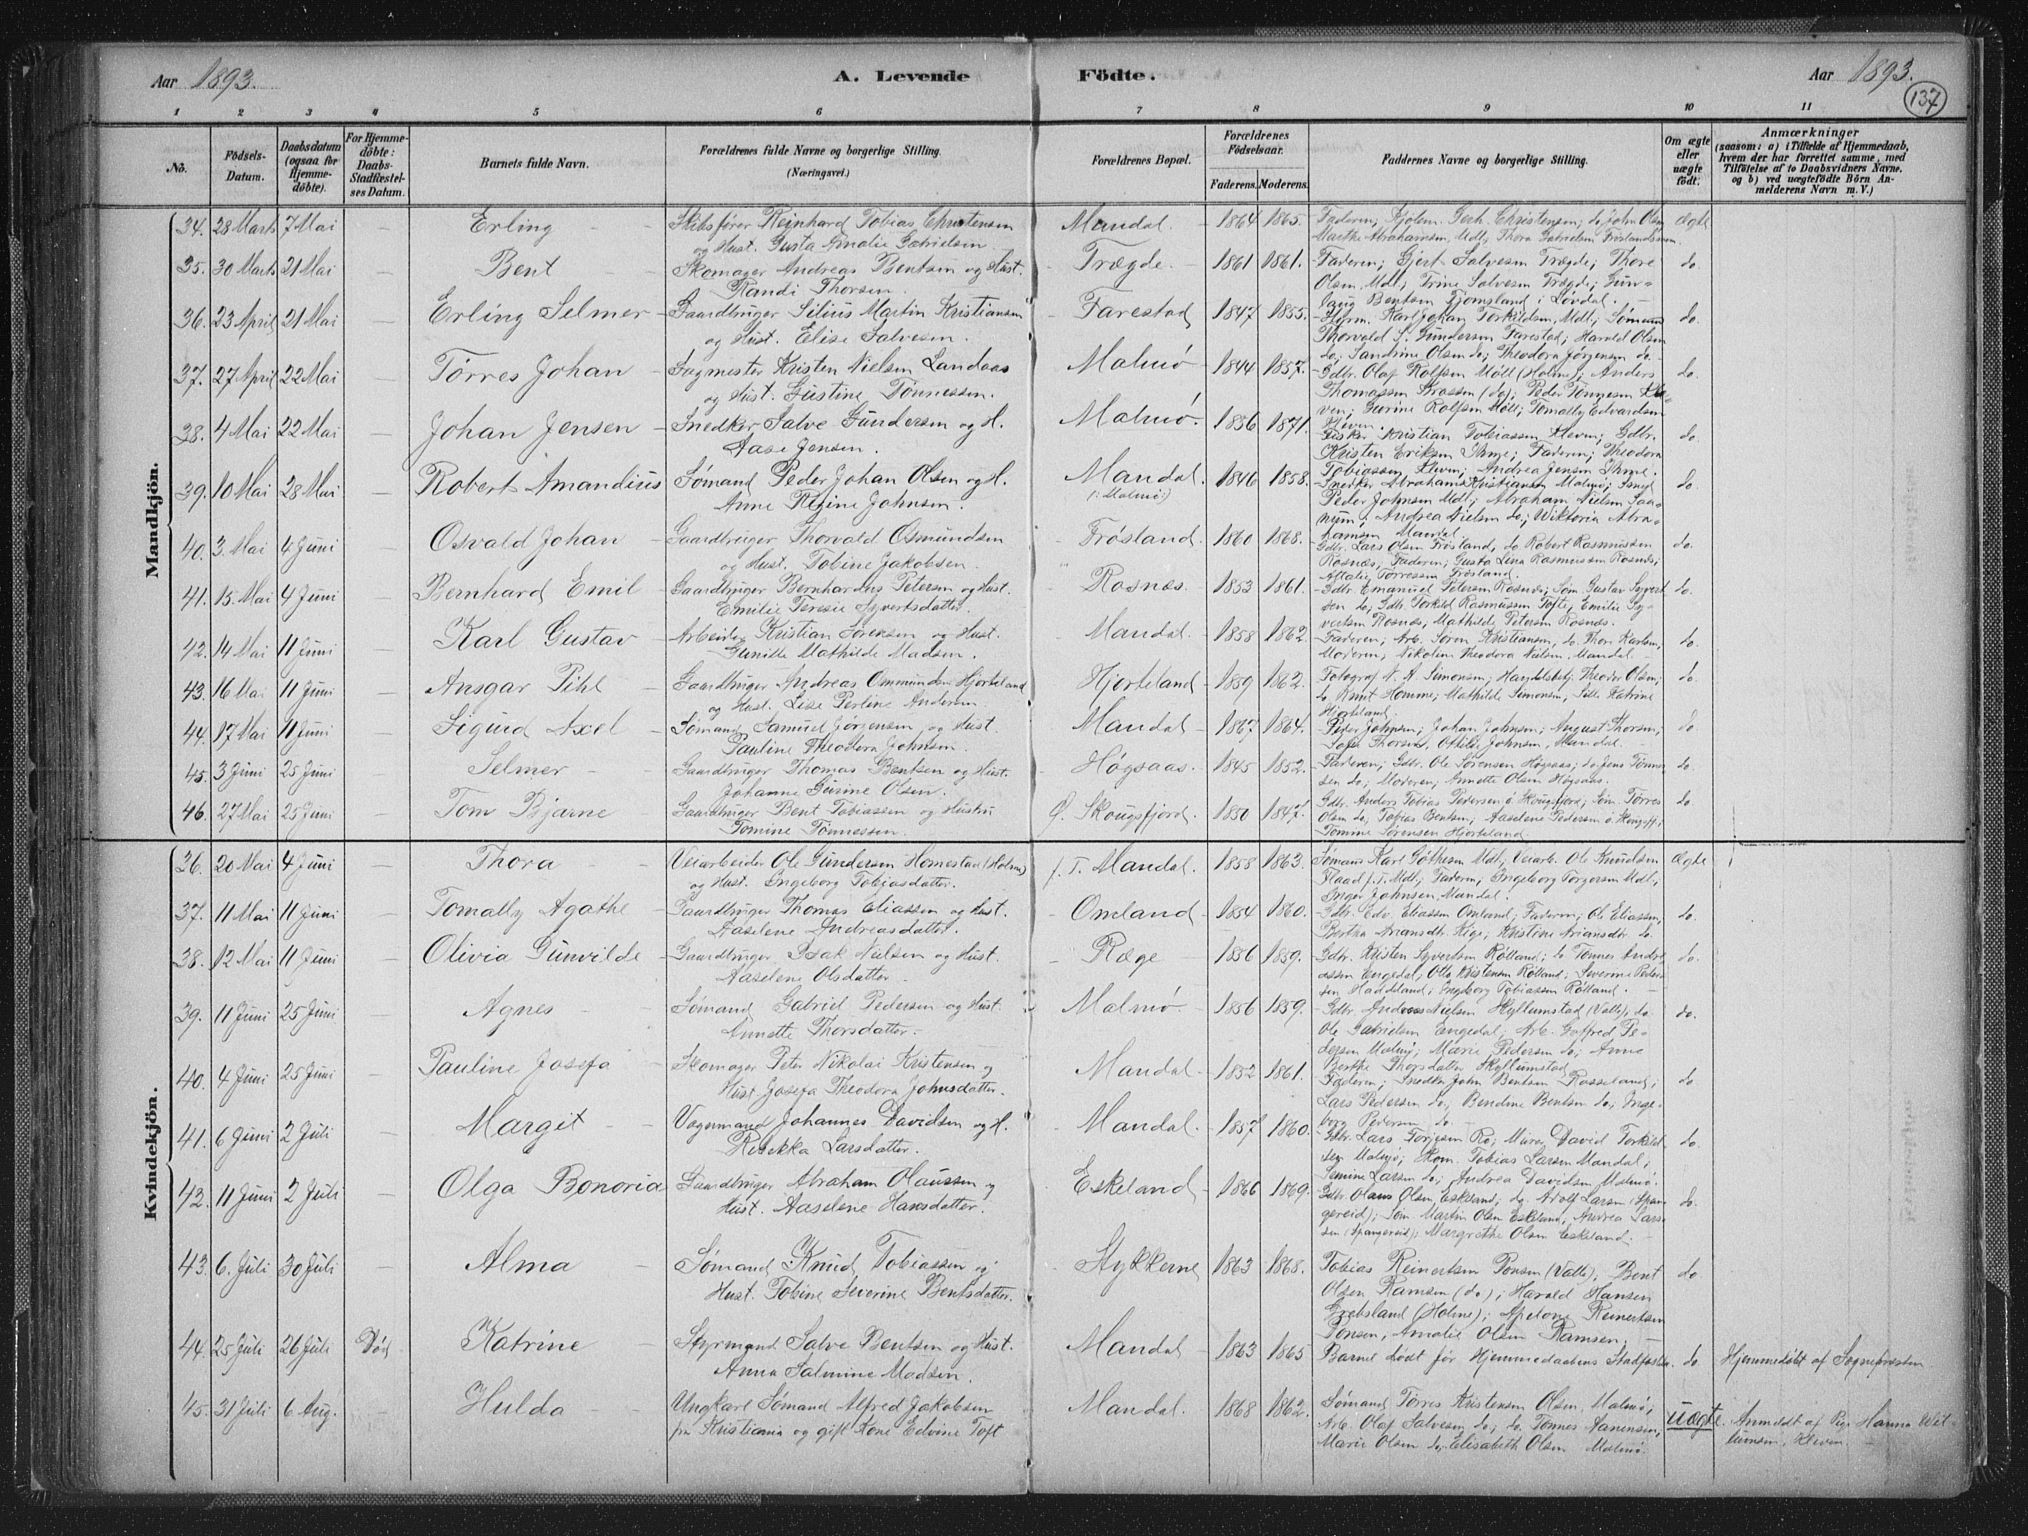 Aar 1893. A. Levende Födte. Aar 1893.
137
1 2 3 4 5 6 7 8 9 10 11
No. Födsels-Datum. Daabsdatum (ogsaa for Hjemme-döbte). For Hjemme-döbte: Daabs-Stadfæstel-ses Datum. Barnets fulde Navn. Forældrenes fulde Navne og borgerlige Stilling. (Næringsvei.) Forældrenes Bopæl. Forældrenes Födselsaar. Faderens. Moderens. Faddernes Navne og borgerlige Stilling. Om ægte eller uægte födt. Anmærkninger (saasom: a) i Tilfælde af Hjemmedaab, hvem der har forrettet samme, med Tilföielse af to Daabsvidners Navne. og b) ved uægtefödte Börn An-melderens Navn m. V.)
Mandkjön.
34. 28 Marts 7 Mai – Erling – Skibsfører Reinhard Tobias Christensen Mandal. 1864 1865. Faderen; ægte
og Hust. Gusta Amalie Gabrielsen.
35. 30 Marts 21 Mai – Bent – Skomager Andreas Bentsen og Hust. Trægde. 1861 1861. Faderen; Gjert Salvesen Trægde; Thore do.
Randi Thorsen. Olsen Mdl; Trine Salvesen Trægde;
36. 23 April 21 Mai – Erling Selmer – Gaardbruger Silius Martin Kristiansen Farestad 1847 1855. Karl Johan Torkildsen, Mdl; do.
og Hust. Elise Salvesen. Thorvald S. Gundersen Farestad; Harald Olsen
do; Sandrine Olsen do; Theodora Jørgensen do.
37. 27 April 22 Mai – Tørres Johan – Sagmester Kristen Nielsen Landaas Malmø 1844 1857. Gdbr. Olaf Rolfsen (Holme); Anders do.
og Hust. Gustine Tønnessen.
38. 4 Mai 22 Mai – Johan Jensen – Snedker Salve Gundersen og H. Malmø. 1836 1871. Fisker Kristian Tobiassen Kleven; Gdbr. do.
Aase Jensen. Kristen Eriksen Ihme; Faderen; Theodora
Tobiassen Kleven; Andrea Jensen Ihme.
39. 10 Mai 28 Mai – Robert Amandius Sømand Peder Johan Olsen og H. Mandal (: Malmø:) 1846 1858. Snedker Abraham Kristiansen Malmø; Smed do.
Anne Regine Johnsen. Peder Johnsen Mdl; Abraham Nielsen
Andrea Nielsen do; Wiktoria Abra-
hamsen Mandal
40. 3. Mai 4 Juni – Osvald Johan – Gaardbruger Thorvald Osmundsen Frøsland. 1860 1868. Gdbr. Lars Olsen Frøsland, do Robert Rasmussen do.
og Hust. Tobine Jakobsen. Rosnæs, Faderen; Gusta Lina Rasmussen Rosnæs;
Attalie Tørressen Frøsland.
41. 15. Mai 4 Juni – Bernhard Emil – Gaardbruger Bernhardus Petersen og Hust. Rosnæs. 1853 1861. Gdbr Emanuel Petersen Rosnæs; Søm. Gustav Syvert do.
Emilie Teresie Syvertsdatter. sen do; Gdbr. Torkild Rasmussen Tofte; Emilie Sy-
vertsen Rosnæs, Mathilde Petersen Rosnæs.
42. 14 Mai 11 Juni – Karl Gustav – Arbeider Kristian Sørensen og Hust. Mandal. 1858 1862. Faderen; Arb. Søren Kristiansen, do Thor Karlsen, do
Gunille Mathilde Madsen. Moderen; Nikoline Theodora Nielsen, Mandal
43. 16 Mai 11 Juni – Ansgar Pihl – Gaardbruger Andreas Ommundsen Hjorteland Hjorteland 1859 1862. Fotograf Simonsen; Handelsbetj. Theodor Olsen; do.
og Hust. Lise Perline Andersen do Knut Homme; Mathilde Simonsen, Katrine
Hjorteland.
44. 17 Mai 11 Juni – Sigurd Axel – Sømand Samuel Jørgensen og Hust. Mandal 1867 1864. Peder Johnsen; Johan Johnsen; August Thorsen; do
Pauline Theodora Johnsen. Thorsen, Othilde Johnsen, Mandal.
45. 3 Juni 25 Juni – Selmer – Gaardbruger Thomas Bentsen og Hust. Høgsaas. 1845 1852. Faderen; Gdbr. Ole Sørensen Høgsaas; do Jens Tønnes do.
Johanne Gurine Olsen. sen do; Moderen; Annette Olsen Høgsaas.
46. 27 Mai 25 Juni – Tom Bjarne – Gaardbruger Bent Tobiassen og Hustru Ø. Skougsfjord. 1850 1847. Gdbr. Anders Tobias Pedersen ø. Skougsfjord; Søm. Tørres do
Tomine Tønnessen. Olsen do; Tobias Bentsen; Aaselene Pedersen ø. Skougsfj;
Tomine Sørensen Hjorteland.
Kvindekjön.
36. 20 Mai 4 Juni – Thora – Veiarbeider Ole Gundersen Homestad (Holme) f. T. Mandal. 1858 1863. Sømand Karl Gøthesen Mdl; Veiarb. Ole Knudsen Ægte
og Hust. Ingeborg Tobiasdatter. Flaad f. T. Mdl; Faderen; Ingeborg Torgersen Mdl;
Inger Johnsen, Mandal.
37. 11 Mai 11 Juni – Tomally Agathe – Gaardbruger Thomas Eliassen og Hust. Omland 1854 1860. Gdbr. Edv. Eliassen Omland; Faderen; Ole Eliassen, do.
Aaselene Andreasdatter. Bertha Ariansdtr. Rige; Kristine Ariansdtr do.
38. 12 Mai 11 Juni – Olivia Gunvilde – Gaardbruger Isak Nielsen og Hust. Ræge 1856 1859. Gdbr. Kristen Syvertsen Rølland; do Tønnes Andre do.
Aaselene Olsdatter. assen Engedal, Otto Kristensen Rølland; Severine Peder-
sen Haadeland; Ingeborg Tobiassen Rølland.
39. 11 Juni 25 Juni – Agnes – Sømand Gabriel Pedersen og Hust. Malmø 1856 1859. Gdbr. Andreas Nielsen Hyllumstad (Valle); do do.
Annette Thorsdatter. Ole Gabrielsen Engedal; Arb. Gotfred Pe-
dersen Malmø; Marie Pedersen do; Anne
Berthe Thorsdatter Skyllumstad
40. 4 Juni 25 Juni – Pauline Josefa – Skomager Peter Nikolai Kristensen og Mandal. 1852 1861. Faderen; Snedker John Bentsen Rosseland; do
Hust. Josefa Theodora Johnsdatter. Lars Pedersen do; Bendine Bentsen do; Inge-
borg Pedersen do.
41. 6 Juni 2 Juli – Margit – Vognmand Johannes Davidsen og H. Mandal. 1857 1860. Gdbr. Lars Torjesen Ro; Murer David Torkild do.
Rebekka Larsdatter. sen Malmø; Skom. Tobias Larsen Mandal;
Semine Larsen do; Andrea Davidsen Malmø.
42. 11 Juni 2 Juli – Olga Bonoria Gaardbruger Abraham Olaussen og Eskeland 1866 1869. Gdbr. Olaus Olsen Eskeland; do Adolf Larsen (Span- do.
Hust. Aaselene Hansdatter. gereid); Søm Martin Olsen Eskeland, Andrea Lars-
sen (Spangereid); Margrethe Olsen Eskeland.
43. 6. Juli 30 Juli – Alma – Sømand Knud Tobiassen og Stykkerne 1863 1868. Tobias Reinertsen Tonsen (Valle), Bent do
Hust. Tobine Severine Bentsdatter. Olsen Ramsen (do); Harald Hansen
(Holme); Apelone Reinertsen
Tonsen, Amalie Olsen Ramsen.
44. 25 Juli 26 Juli Død Katrine – Styrmand Salve Bentsen og Hust. Mandal 1863 1865 Barnet dødt før Hjemmedaabens Stadfæstelse. do Hjemmedøbt af Sognepræsten
Anna Salmine Madsen.
45. 31 Juli 6 Aug. – Hulda – Ungkarl Sømand Alfred Jakobsen Mandal. 1868 1862. Sømand Tørres Kristensen Olsen, Malmø; uægte. Anmeldt af Pige Hanna Wil-
fra Kristiania og gift Kone Edvine Toft Arb. Olaf Salvesen do; do Tønnes Aanensen; lumsen, Kleven.
Marie Olsen do; Elisabeth Olsen Malmø.